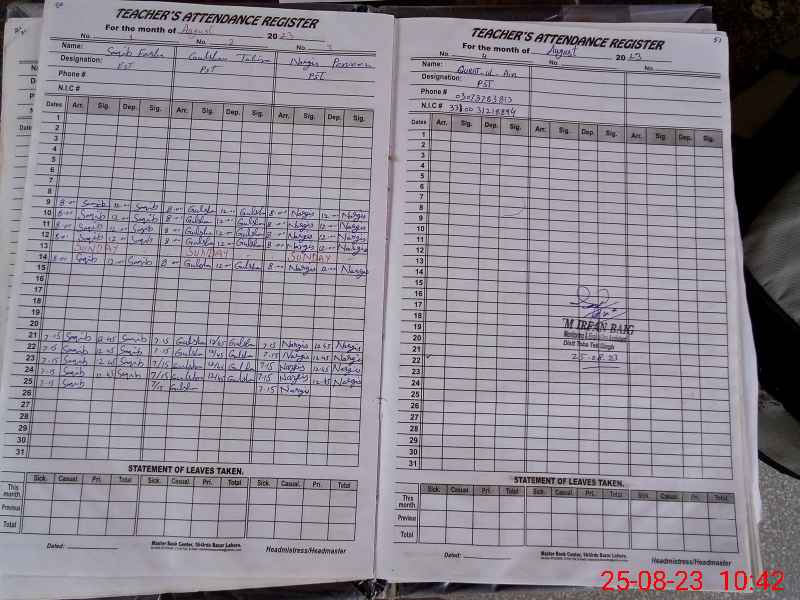 TEACHER'S ATTENDANCE REGISTER
For the month of August 2023
No. 1 No. 2 No. 3
Name: Saqib Gulshan Nargis
Designation: PST PST PST
Phone #
N.I.C #
Dates Arr. Sig. Dep. Sig. Arr. Sig. Dep. Sig. Arr. Sig. Dep. Sig.
1
2
3
4
5
6
7
8
9 8-00 Saqib 12-00 Saqib 8-00 Gulshan 12-00 Gulshan 8-00 Nargis 12-00 Nargis
10 8-00 Saqib 12-00 Saqib 8-00 Gulshan 12-00 Gulshan 8-00 Nargis 12-00 Nargis
11 8-00 Saqib 12-00 Saqib 8-00 Gulshan 12-00 Gulshan 8-00 Nargis 12-00 Nargis
12 8-00 Saqib 12-00 Saqib 8-00 Gulshan 12-00 Gulshan 8-00 Nargis 12-00 Nargis
13 SUNDAY SUNDAY SUNDAY
14 8-00 Saqib 12-00 Saqib 8-00 Gulshan 12-00 Gulshan 8-00 Nargis 12-00 Nargis
15
16
17
18
19
20
21 7-15 Saqib 12-45 Saqib 7-15 Gulshan 12/45 Gulshan 7-15 Nargis 12-45 Nargis
22 7-15 Saqib 12-45 Saqib 7-15 Gulshan 12/45 Gulshan 7-15 Nargis 12-45 Nargis
23 7-15 Saqib 12-45 Saqib 7/15 Gulshan 12/45 Gulshan 7-15 Nargis 12-45 Nargis
24 7-15 Saqib 12-45 Saqib 7/15 Gulshan 12/45 Gulshan 7-15 Nargis 12-45 Nargis
25 7-15 Saqib 7/15 Gulshan 7-15 Nargis
26
27
28
29
30
31
STATEMENT OF LEAVES TAKEN.
Sick. Casual. Pri. Total Sick. Casual. Pri. Total Sick. Casual. Pri. Total
This month
Previous
Total
Dated: Master Book Center, 16-Urdu Bazar Lahore. Headmistress/Headmaster
TEACHER'S ATTENDANCE REGISTER 51
For the month of August 2023
No. 4 No. No.
Name: Qurat-ul-Ain
Designation: PST
Phone # 03073783813
N.I.C #
Dates Arr. Sig. Dep. Sig. Arr. Sig. Dep. Sig. Arr. Sig. Dep. Sig.
1
2
3
4
5
6
7
8
9
10
11
12
13
14
15
16
17
18
19
20
21
22
23
24
25
26
27
28
29
30
31
M IRFAN BAIG
Distt Toba Tek Singh
25-08-23
STATEMENT OF LEAVES TAKEN.
Sick. Casual. Pri. Total Sick. Casual. Pri. Total Sick. Casual. Pri. Total
This month
Previous
Total
Dated: Master Book Center, 16-Urdu Bazar Lahore. Headmistress/Headmaster
25-08-23 10:42